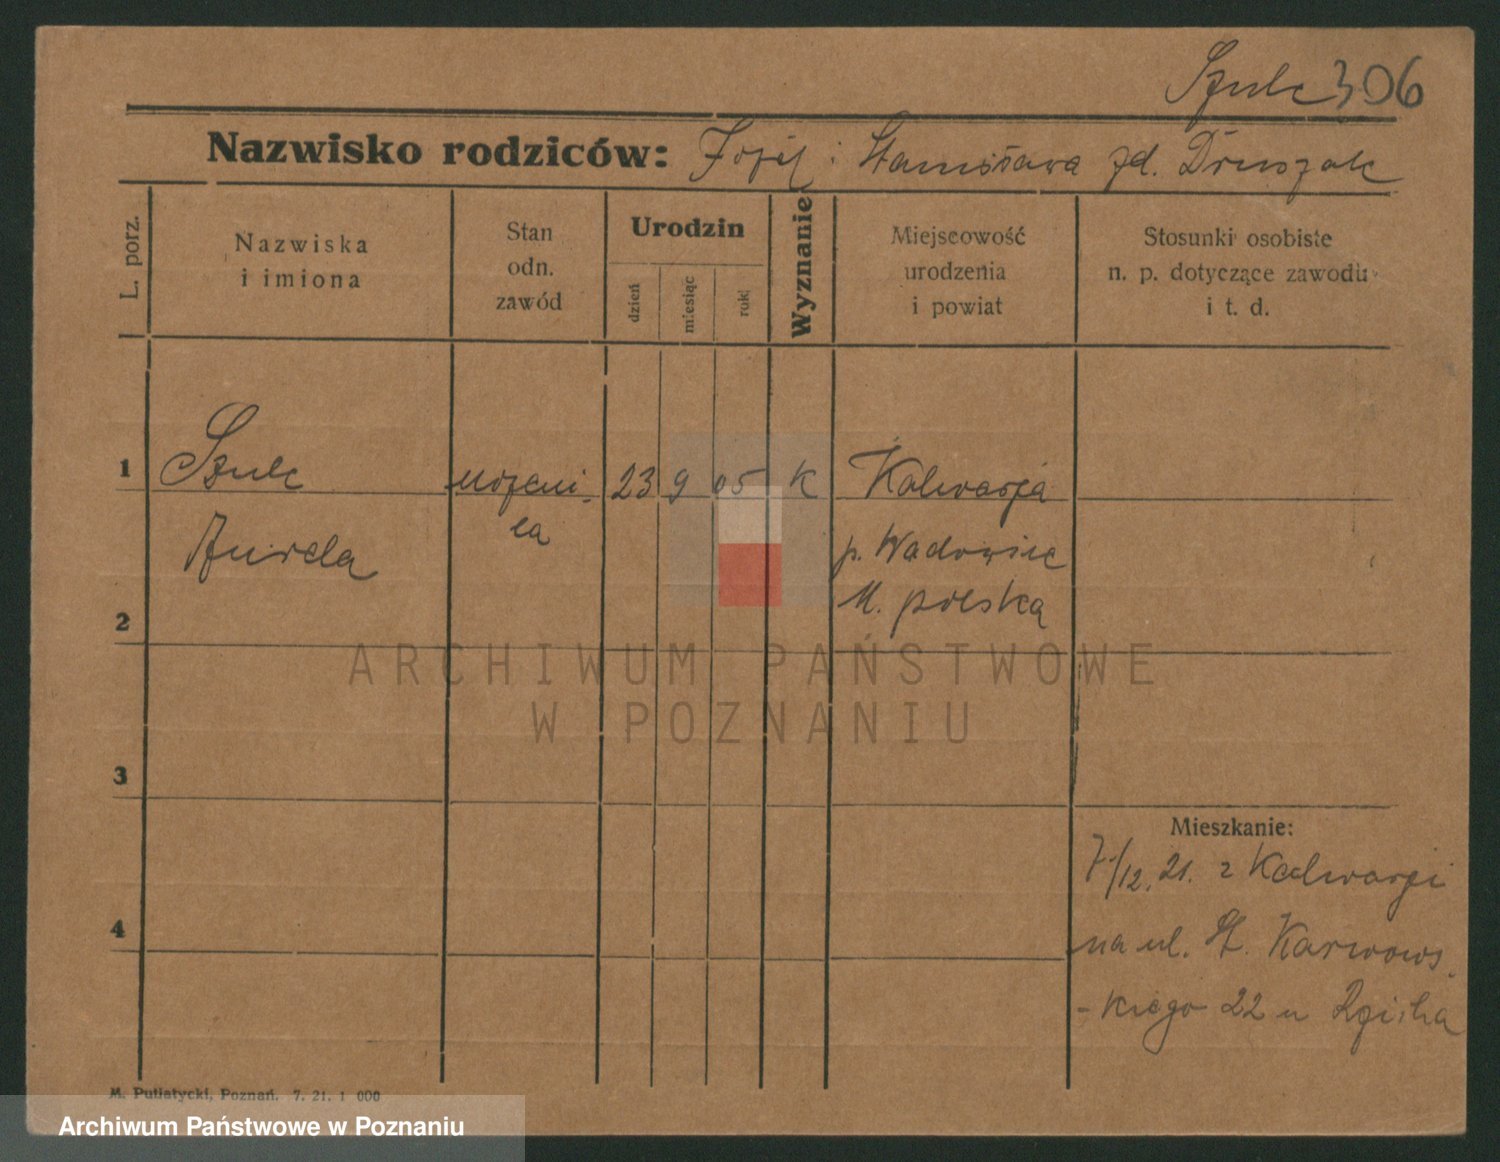 Szulc 306
Nazwisko rodziców: Józef i Stanisława zd. Druszak
L. porz.
Nazwiska
i imiona
Stan
odn.
zawód
Urodzin
dzień
miesiąc
rok
Wyznanie
Miejscowość
urodzenia
i powiat
Stosunki osobiste
n. p. dotyczące zawodu
i t. d.
1 Szulc 23 9 05 K Kalwarja
p. Wadowice
M. polska
2
3
Mieszkanie:
7/12. 21. z Kalwarji
4
na ul. St. Karwows
- kiego 22 u
M. Putiatycki, Poznań. 7. 21. 1 000
ARCHIWUM PAŃSTWOWE
W POZNANIU
Archiwum Państwowe w Poznaniu